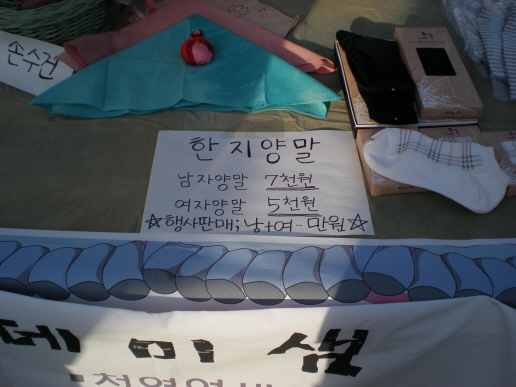 손수건
한지양말
남자양말 7천원
여자양말 5천원
☆행사판매; 남+여-만원☆
데미샘
천연염색